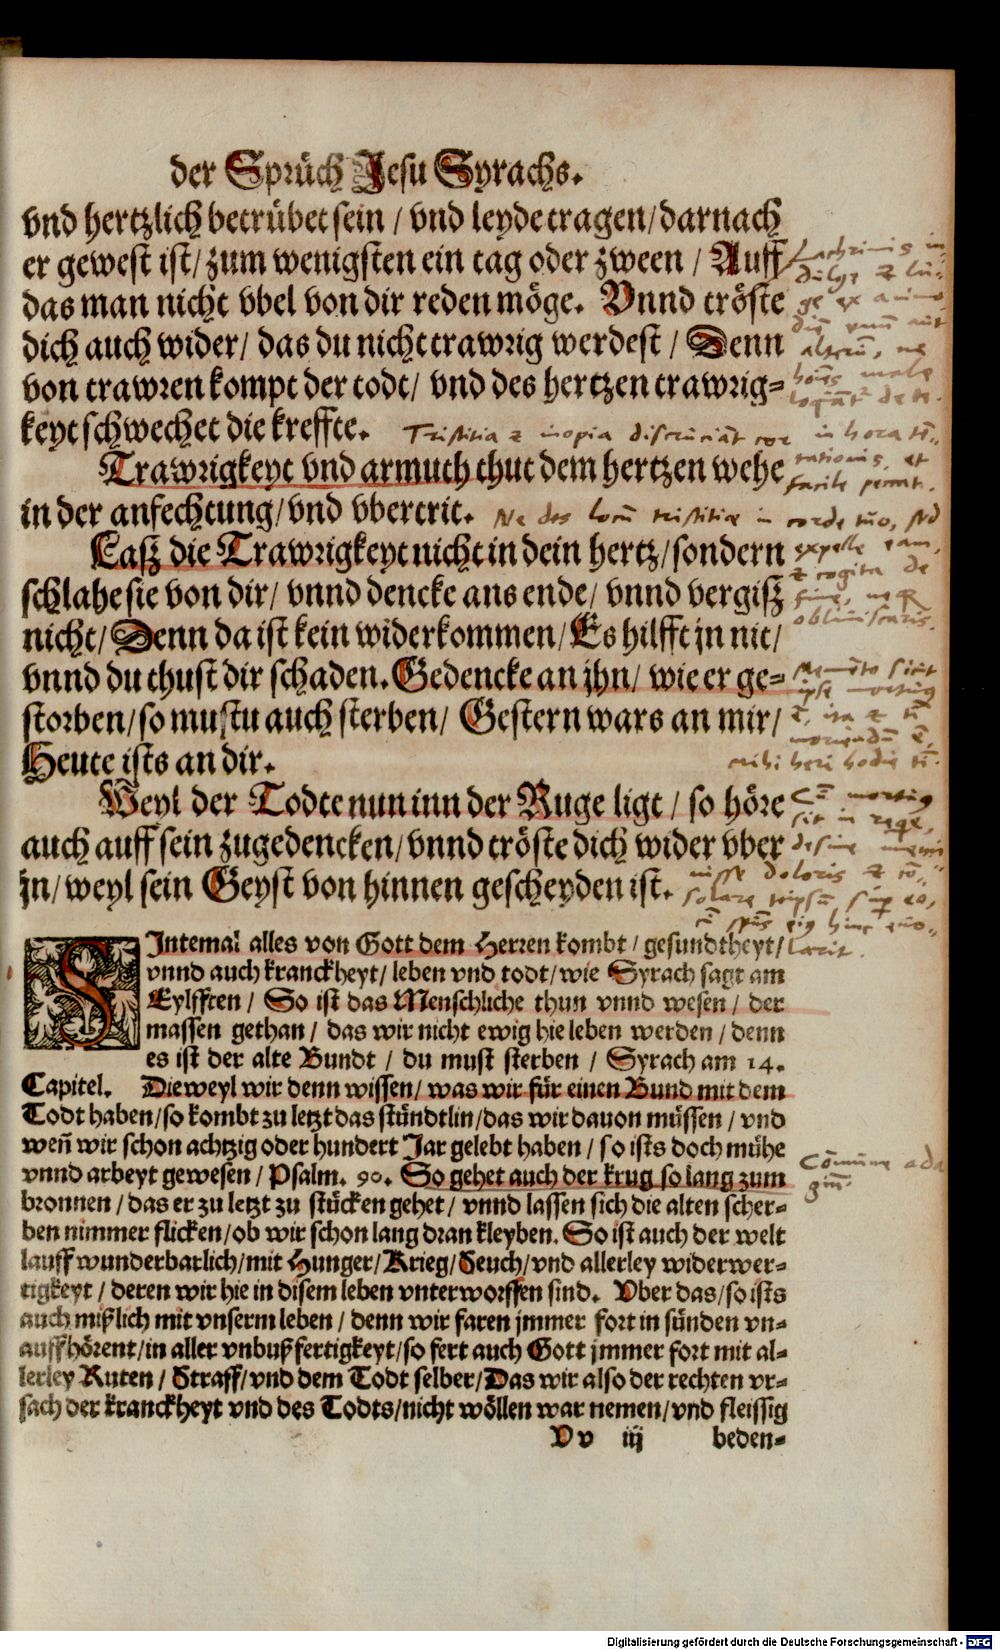 der Sprüch Jesu Syrachs.
vnd hertzlich betrübet sein / vnd leyde tragen / darnach
er gewest ist / zum wenigsten ein tag oder zween / Auff
das man nicht vbel von dir reden möge. Vnnd tröste
dich auch wider / das du nicht trawrig werdest / Denn
von trawren kompt der todt / vnd des hertzen trawrig-
keyt schwechet die kreffte.
Trawrigkeyt vnd armuth thut dem hertzen wehe
in der anfechtung / vnd vbertrit.
Lasz die Trawrigkeyt nicht in dein hertz / sondern
schlahe sie von dir / vnnd dencke ans ende / vnnd vergisz
nicht / Denn da ist kein widerkommen / Es hilfft jn nit /
vnnd du thust dir schaden. Gedencke an jhn / wie er ge-
storben / so mustu auch sterben / Gestern wars an mir /
Heute ists an dir.
Weyl der Todte nun inn der Ruge ligt / so höre
auch auff sein zugedencken / vnnd tröste dich wider vber
jn / weyl sein Geyst von hinnen gescheyden ist.
Lachrimis in-
dulge et lu-
ge ex animo
vnũ aut
alterũ, ne
male
de te.
Tristitia et inopia discruciãt cor in hora tẽ-
tationis, et
facile
Ne des locũ tristitiæ in corde tuo, sed
expelle eam,
et cogita de
fine, neq
obliuiscaris.
Memẽto sicut
ipse mortuus
ẽ, ita et
moriendũ ẽ,
mihi heri hodie
Cũ mortuus
sit in
desine memi-
nisse doloris et cõ-
solare teipsũ sup eo,
hinc
SIntemal alles von Gott dem Herren kombt / gesundtheyt /
vnnd auch kranckheyt / leben vnd todt / wie Syrach sagt am
Eylfften / So ist das Menschliche thun vnnd wesen / der
massen gethan / das wir nicht ewig hie leben werden / denn
es ist der alte Bundt / du must sterben / Syrach am 14.
Capitel. Dieweyl wir denn wissen / was wir für einen Bund mit dem
Todt haben / so kombt zu letzt das stündtlin / das wir dauon müssen / vnd
weñ wir schon achtzig oder hundert Jar gelebt haben / so ists doch mühe
vnnd arbeyt gewesen / Psalm. 90. So gehet auch der krug so lang zum
bronnen / das er zu letzt zu stücken gehet / vnnd lassen sich die alten scher-
ben nimmer flicken / ob wir schon lang dran kleyben. So ist auch der welt
lauff wunderbarlich / mit Hunger / Krieg / Seuch / vnd allerley widerwer-
tigkeyt / deren wir hie in disem leben vnterworffen sind. Vber das / so ists
auch mißlich mit vnserm leben / denn wir faren jmmer fort in sünden vn-
auffhörent / in aller vnbußfertigkeyt / so fert auch Gott jmmer fort mit al-
lerley Ruten / Straff / vnd dem Todt selber / Das wir also der rechten vr-
sach der kranckheyt vnd des Todts / nicht wöllen war nemen / vnd fleissig
Cõmune ada
giũ.
Vv iij beden-
Digitalisierung gefördert durch die Deutsche Forschungsgemeinschaft - DFG